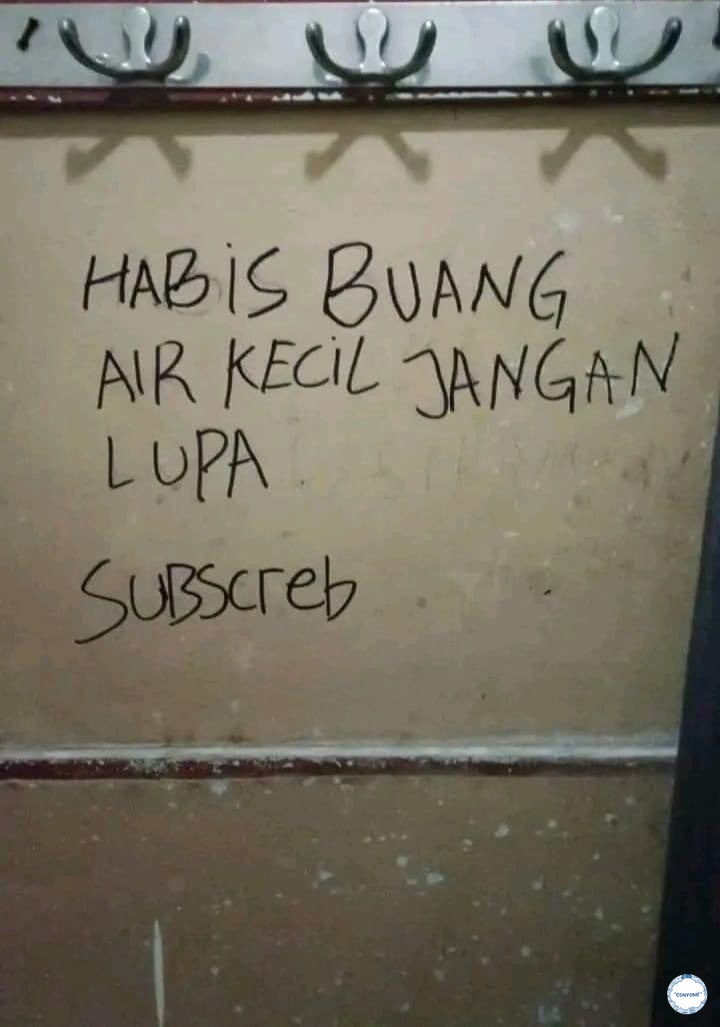 HABIS BUANG
AIR KECIL JANGAN
LUPA
SUBScreb
"CONYOME"